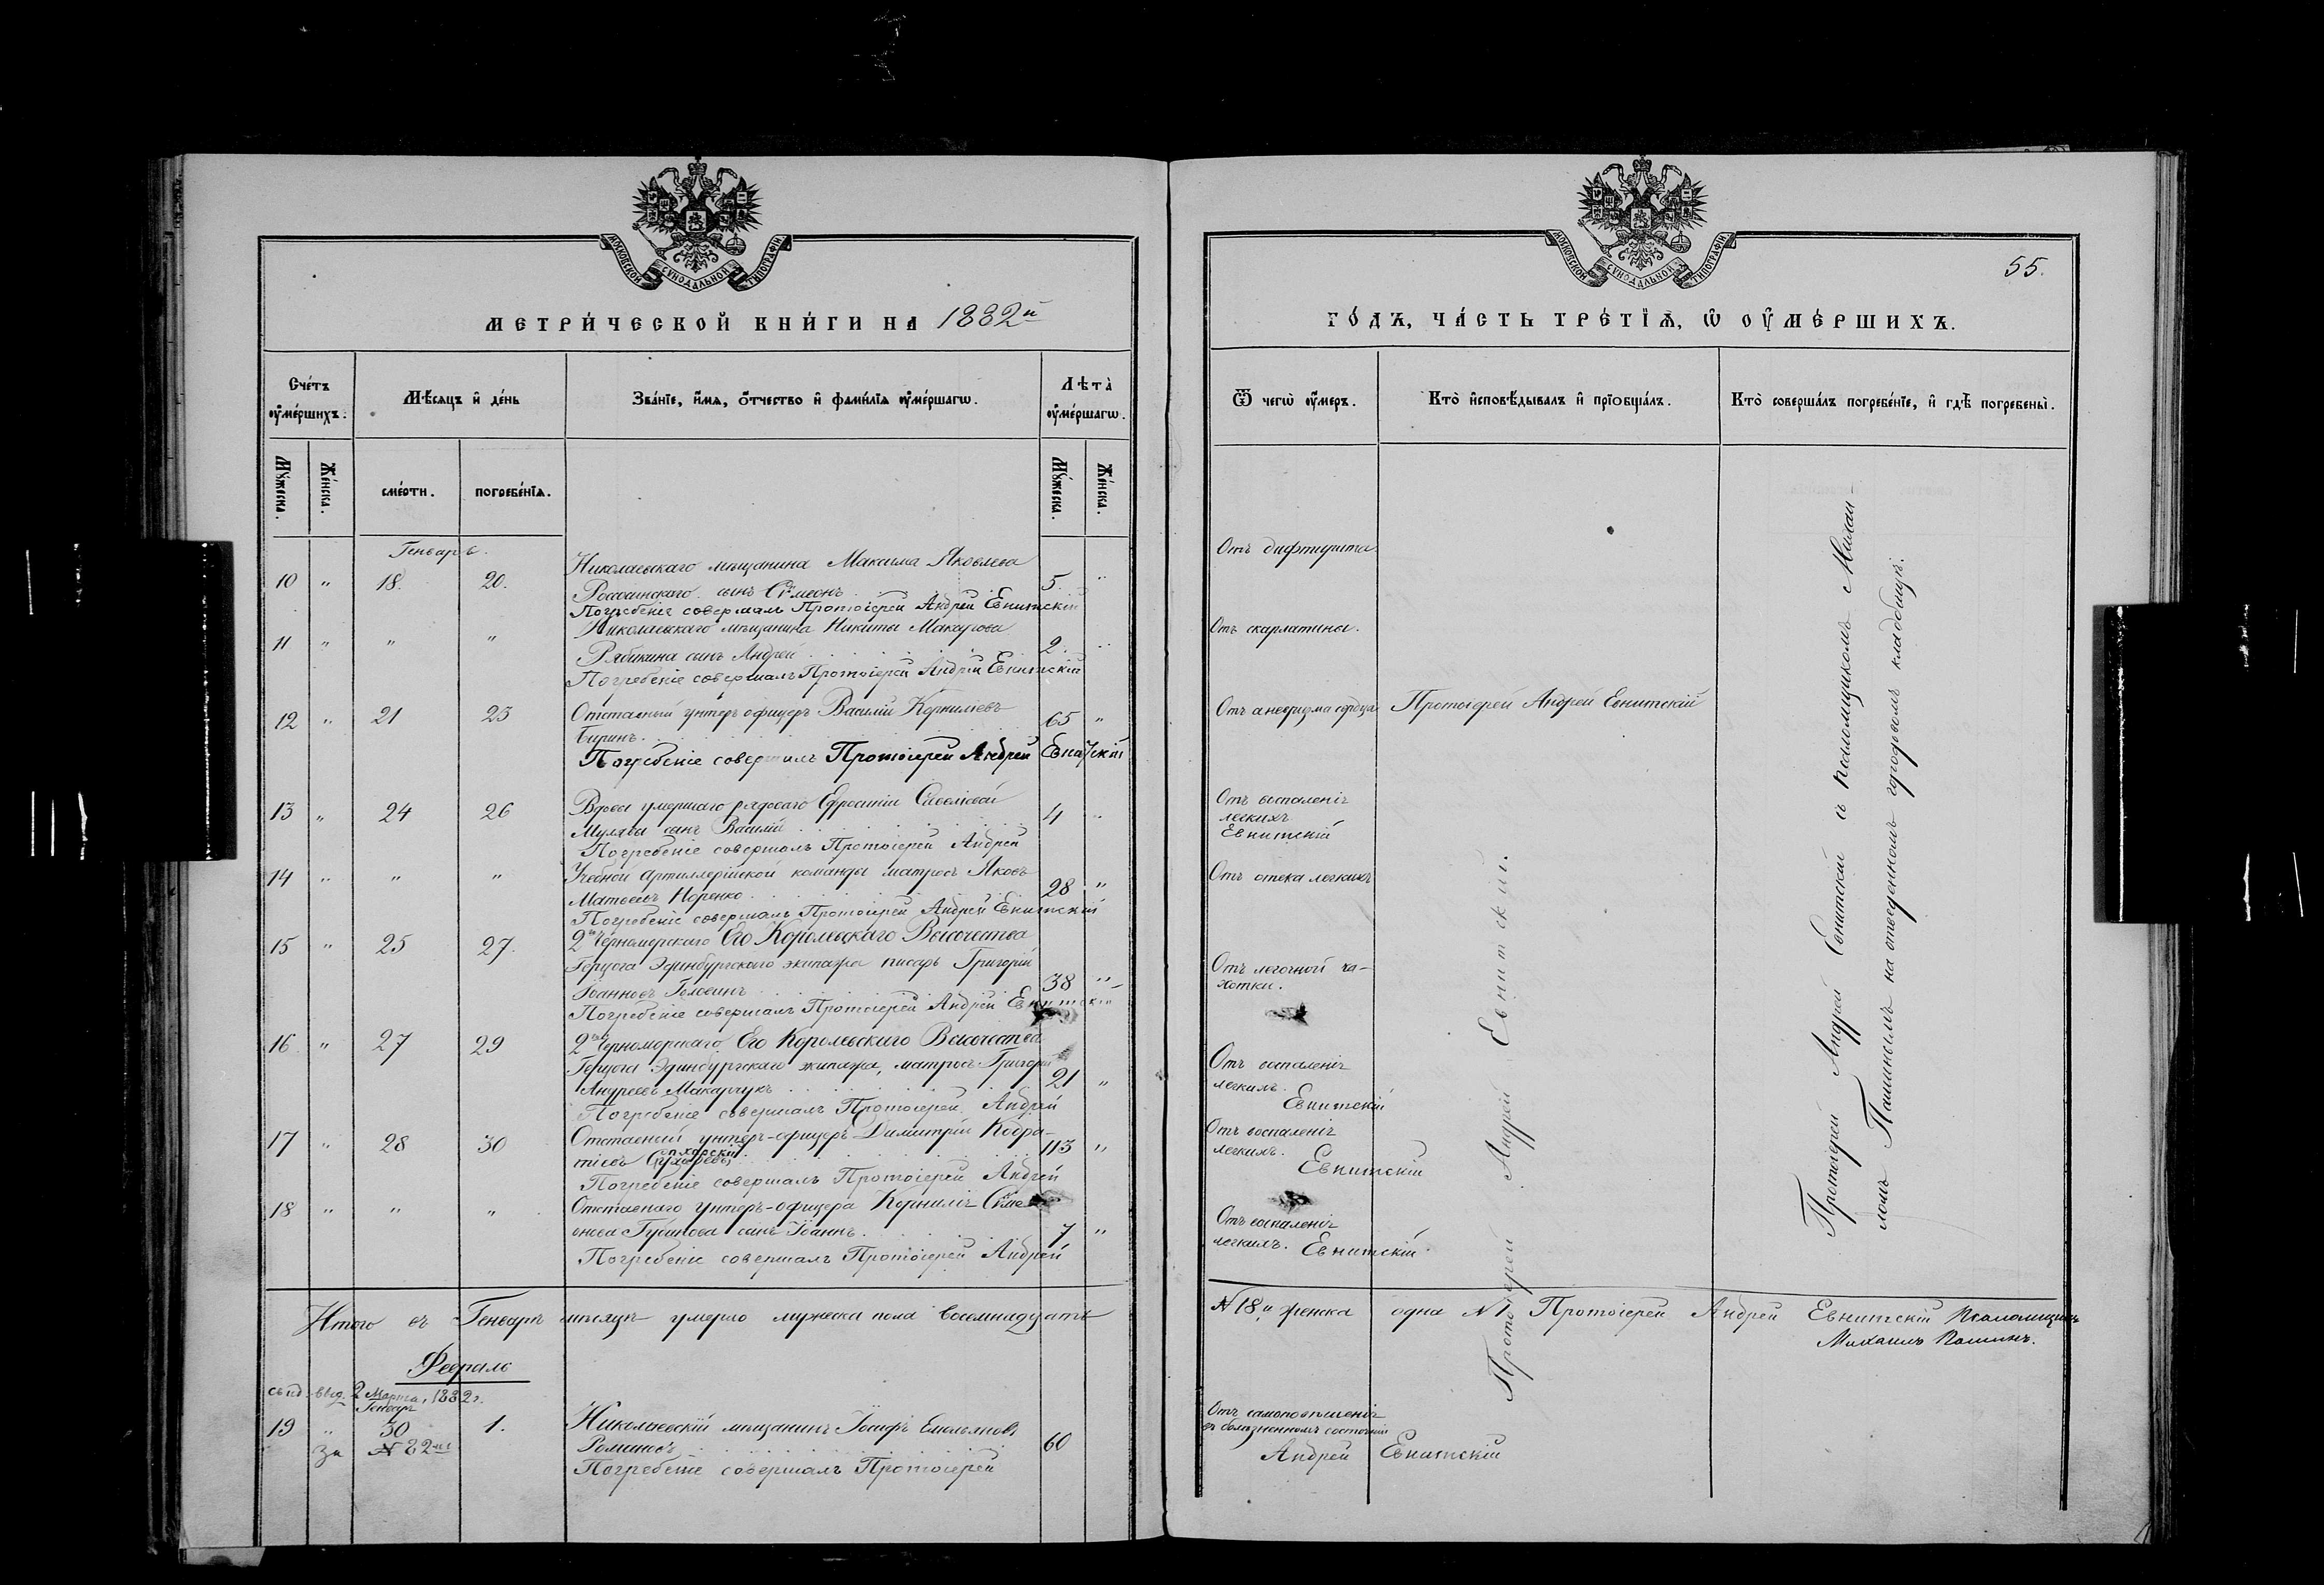 МОСКОВСКОЙ СѴНОДАЛЬНОЙ ТИПОГРАФІИ
МЕТРИ́ЧЕСКОЙ КНИ́ГИ НА 1882й
Сче́тъ ᲂу҆ме́ршихъ.
Мѣ́сяцъ и҆ де́нь
Зва́нїе, и҆́мѧ, ѻ҆́тчество и҆ фами́лїѧ ᲂу҆ме́ршагѡ.
Лѣта̀ ᲂу҆ме́ршагѡ.
Мꙋ́жеска.
Же́нска.
сме́рти.
погребе́нїѧ.
Мꙋ́жеска.
Же́нска.
Генварь.
10 " 18. 20. Николаевскаго мѣщанина Максима Яковлева
сынъ Сѵмеонъ 5. "
Погребеніе совершалъ Протоіерей Андрей Евнитскій
11 " " " Николаевскаго мѣщанина Никиты Макарова
Рябикина сынъ Андрей 2. "
Погребеніе совершалъ Протоіерей Андрей Евнитскій
12 " 21 23 Отставный унтеръ офицеръ Василій Корниліевъ
65 "
Погребеніе совершилъ Протоіерей Андрей Евнитскій
13 " 24 26 Вдовы умершаго рядоваго Ефросиніи Савеліевой
сынъ Василій 4 "
Погребеніе совершалъ Протоіерей Андрей
14 " " " Учебной Артиллерійской команды матросъ Яковъ
Матвѣевъ Норенко 28 "
Погребеніе совершалъ Протоіерей Андрей Евнитскій
15 " 25 27. 2го Черноморскаго Его Королевскаго Высочества
Герцога Эдинбургскаго экипажа писарь Григорій
Іоанновъ Головинъ 38 "
Погребеніе совершалъ Протоіерей Андрей Евнитскій
16 " 27 29 2го Черноморскаго Его Королевскаго Высочества
Герцога Эдинбургскаго экипажа, матросъ Григорій
Андреевъ Макарчукъ 21 "
Погребеніе совершалъ Протоіерей Андрей
17 " 28 30 Отставный унтеръ-офицеръ Димитрій Кодра-
тіевъ 113 "
Погребеніе совершалъ Протоіерей Андрей
18 " " " Отставнаго унтеръ-офицера Корнилія Сѵме-
онова Губанова сынъ Іоаннъ 7 "
Погребеніе совершалъ Протоіерей Андрей
Итого въ Генварѣ мѣсяцѣ умерло мужеска пола восемнадцать
Февраль
свид. выд. 2 Марта, 1882 г.
Генваря
19 " 30 1. Николаевскій мѣщанинъ Іосифъ Емельяновъ
за N 82мъ Романовъ 60
Погребеніе совершалъ Протоіерей
МОСКОВСКОЙ СѴНОДАЛЬНОЙ ТИПОГРАФІИ
55.
ГО́ДЪ, ЧА́СТЬ ТРЕ́ТЇѦ, Ѡ҆ ОУ҆МЕ́РШИХЪ.
Ѿ чегѡ̀ ᲂу҆́меръ.
Кто̀ и҆сповѣ́дывалъ и҆ прїобща́лъ.
Кто̀ соверша́лъ погребе́нїе, и҆ гдѣ̀ погребены̀.
Отъ дифтерита.
Отъ скарлатины.
Отъ аневризма сердца Протоіерей Андрей Евнитскій
Отъ воспаленія
легкихъ.
Евнитскій
Отъ отека легкихъ
Отъ легочной ча-
хотки.
Отъ воспаленія
легкихъ.
Евнитскій
Отъ воспаленія
легкихъ.
Евнитскій
Отъ воспаленія
легкихъ. Евнитскій.
Протоіерей Андрей Евнитскій.
Протоіерей Андрей Евнитскій съ псаломщикомъ Михаи-
ломъ Пашинымъ на отведенномъ городскомъ кладбищѣ.
N 18, и женска одна N 1 Протоіерей Андрей Евнитскій Псаломщикъ
Михаилъ Пашинъ.
Отъ самоповѣшенія
въ болѣзненномъ состояніи
Андрей Евнитскій